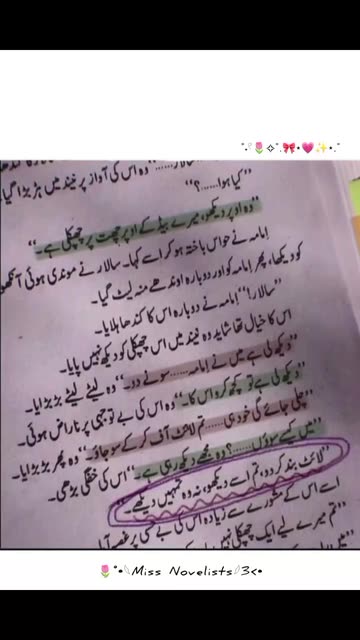 ˚˖𓍢🌷✧˚.🎀⋆💗✨⋆.˚
سالار......“ وہ اس کی آواز پر نیند میں ہڑبڑا گیا۔
”کیا ہوا......؟“
”وہ اوپر دیکھو، میرے بیڈ کے اوپر چھت پر چھپکلی ہے۔“
امامہ نے حواس باختہ ہو کر اسے کہا۔ سالار نے موندی ہوئی آنکھو
کو دیکھا، پھر امامہ کو اور دوبارہ اوندھے منہ لیٹ گیا۔
”سالار!“ امامہ نے دوبارہ اس کا کندھا ہلایا۔
اس کا خیال تھا شاید وہ نیند میں اس چھپکلی کو دیکھ نہیں پایا۔
”دیکھ لی ہے میں نے امامہ...... سونے دو۔“ وہ لیٹے لیٹے بڑبڑایا۔
”دیکھ لی ہے تو کچھ کرو اس کا۔“ وہ اس کی بے توجہی پر ناراض ہوئی۔
”چلی جائے گی خود ہی...... تم لائٹ آف کر کے سو جاؤ۔“ وہ پھر بڑبڑایا۔
”میں کیسے سوؤں......؟ وہ مجھے دیکھ رہی ہے۔“ اس کی خفگی بڑھی۔
”لائٹ بند کر دو، نہ تم اسے دیکھو، نہ وہ تمہیں دیکھے۔“
اسے اس کے مشورے سے زیادہ اس کی بے حسی پر غصہ آیا
”تم میرے لیے ایک چھپکلی نہیں
🌷˚• Miss Novelists 3<•